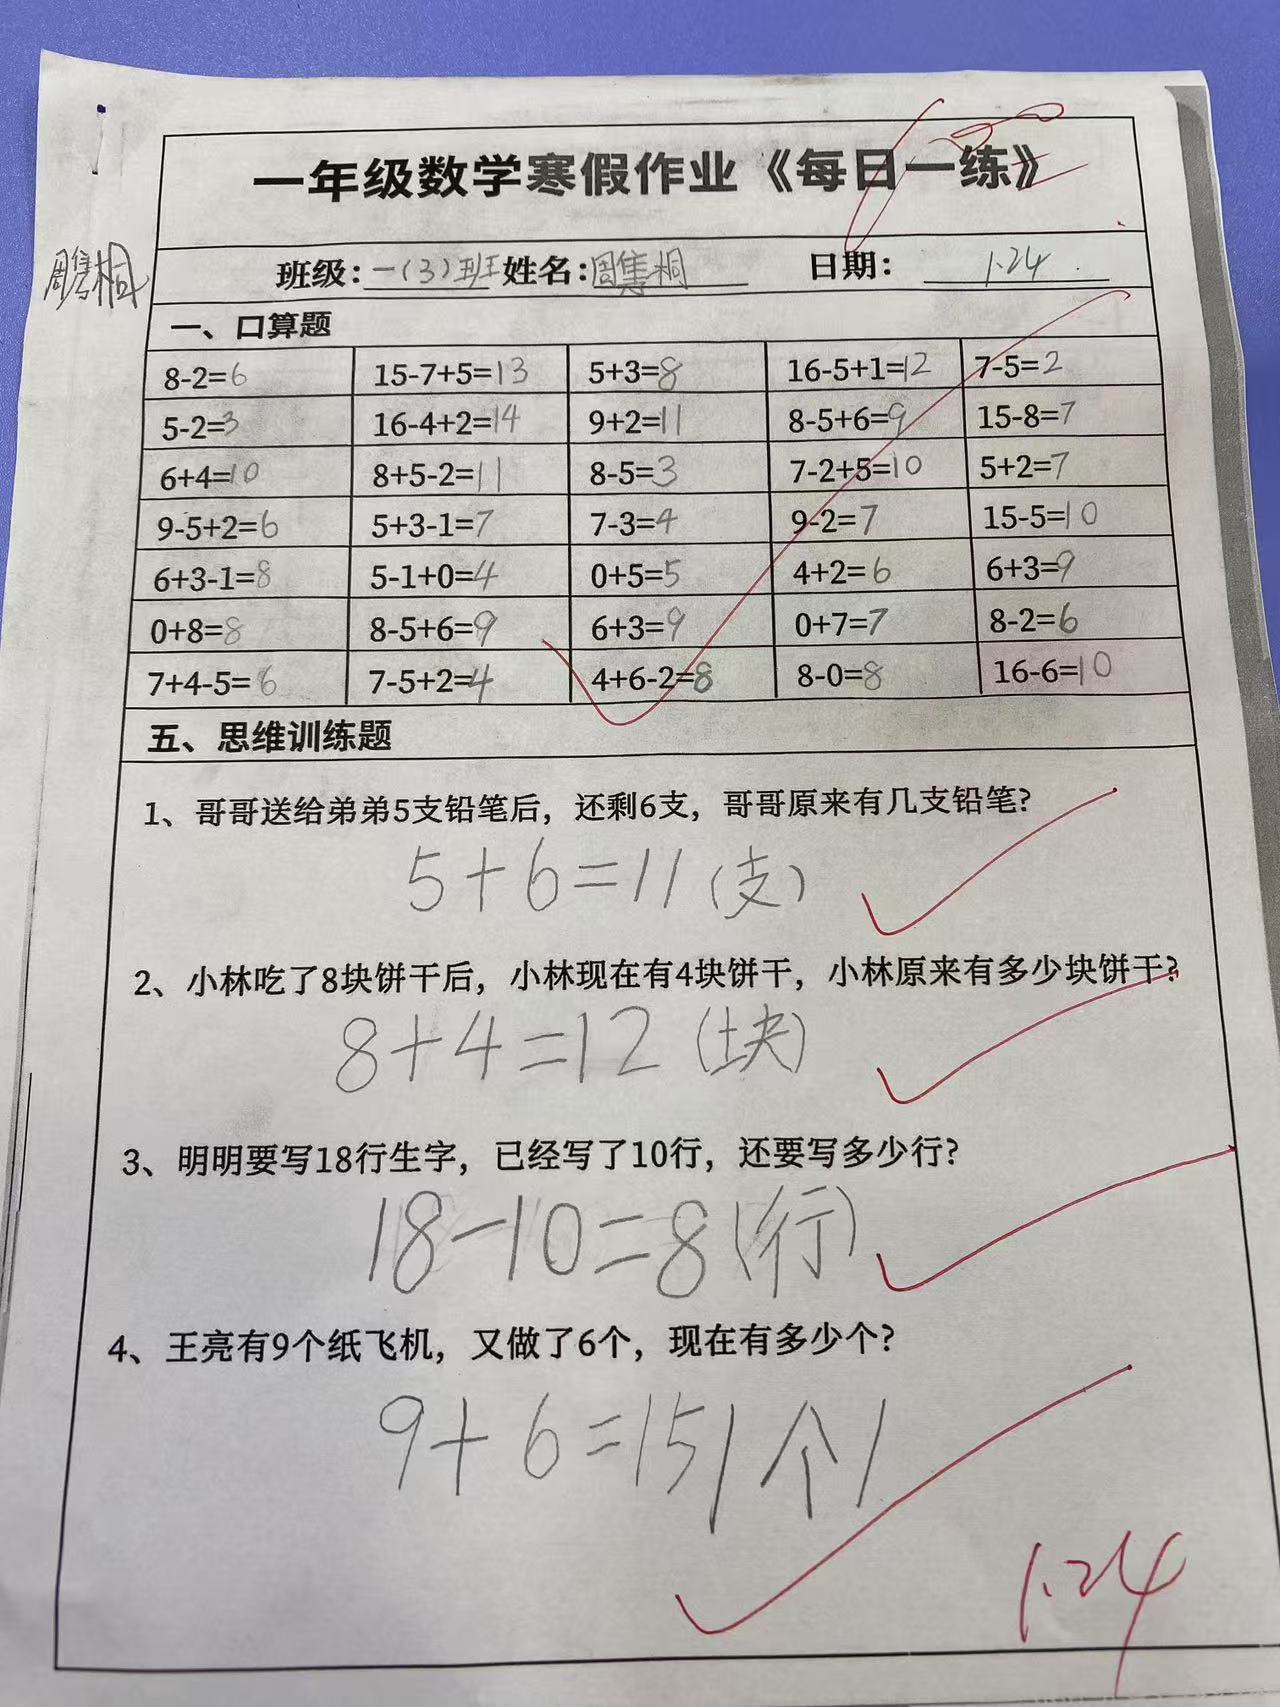 一年级数学寒假作业《每日一练》
班级:一(3)班 姓名:周隽桐 日期: 1.24
周隽桐
一、口算题
8-2=6 15-7+5=13 5+3=8 16-5+1=12 7-5=2
5-2=3 16-4+2=14 9+2=11 8-5+6=9 15-8=7
6+4=10 8+5-2=11 8-5=3 7-2+5=10 5+2=7
9-5+2=6 5+3-1=7 7-3=4 9-2=7 15-5=10
6+3-1=8 5-1+0=4 0+5=5 4+2=6 6+3=9
0+8=8 8-5+6=9 6+3=9 0+7=7 8-2=6
7+4-5=6 7-5+2=4 4+6-2=8 8-0=8 16-6=10
五、思维训练题
1、哥哥送给弟弟5支铅笔后，还剩6支，哥哥原来有几支铅笔?
5+6=11(支)
2、小林吃了8块饼干后，小林现在有4块饼干，小林原来有多少块饼干?
8+4=12(块)
3、明明要写18行生字，已经写了10行，还要写多少行?
18-10=8(行)
4、王亮有9个纸飞机，又做了6个，现在有多少个?
9+6=15(个)
1.24